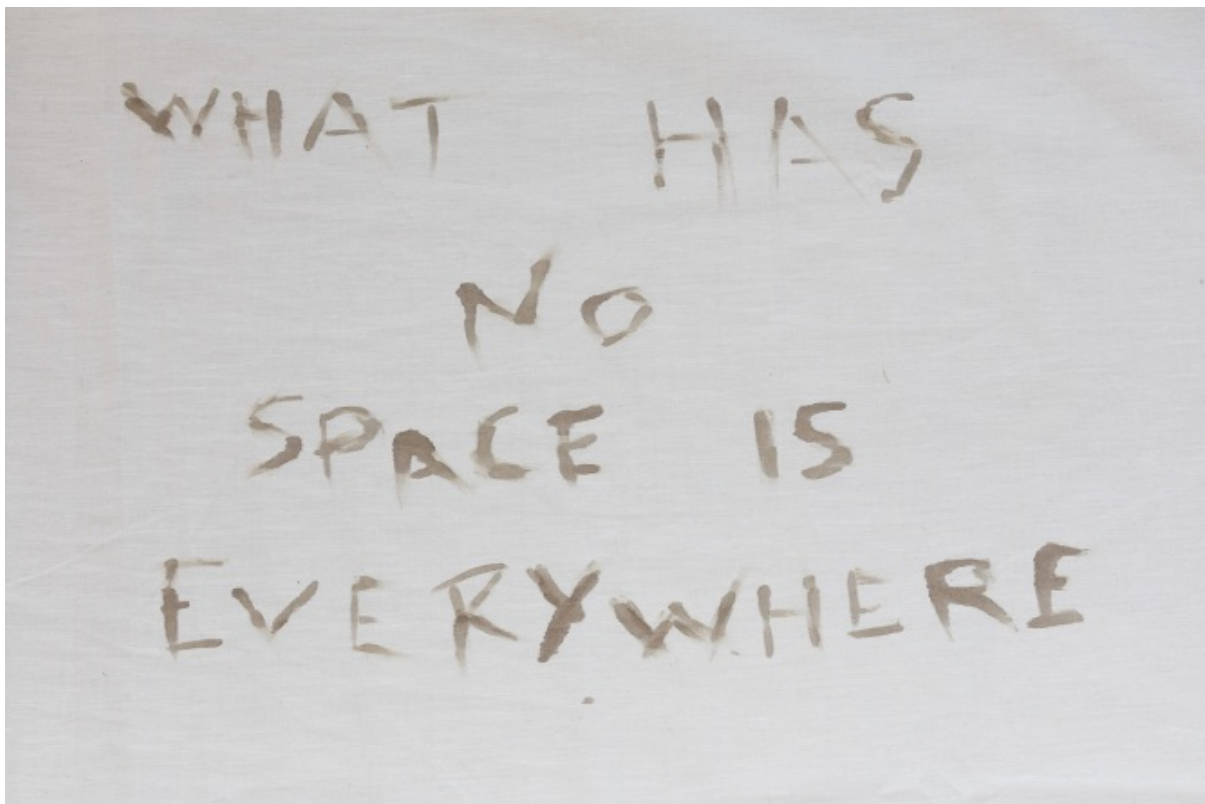 WHAT HAS
NO
SPACE IS
EVERYWHERE